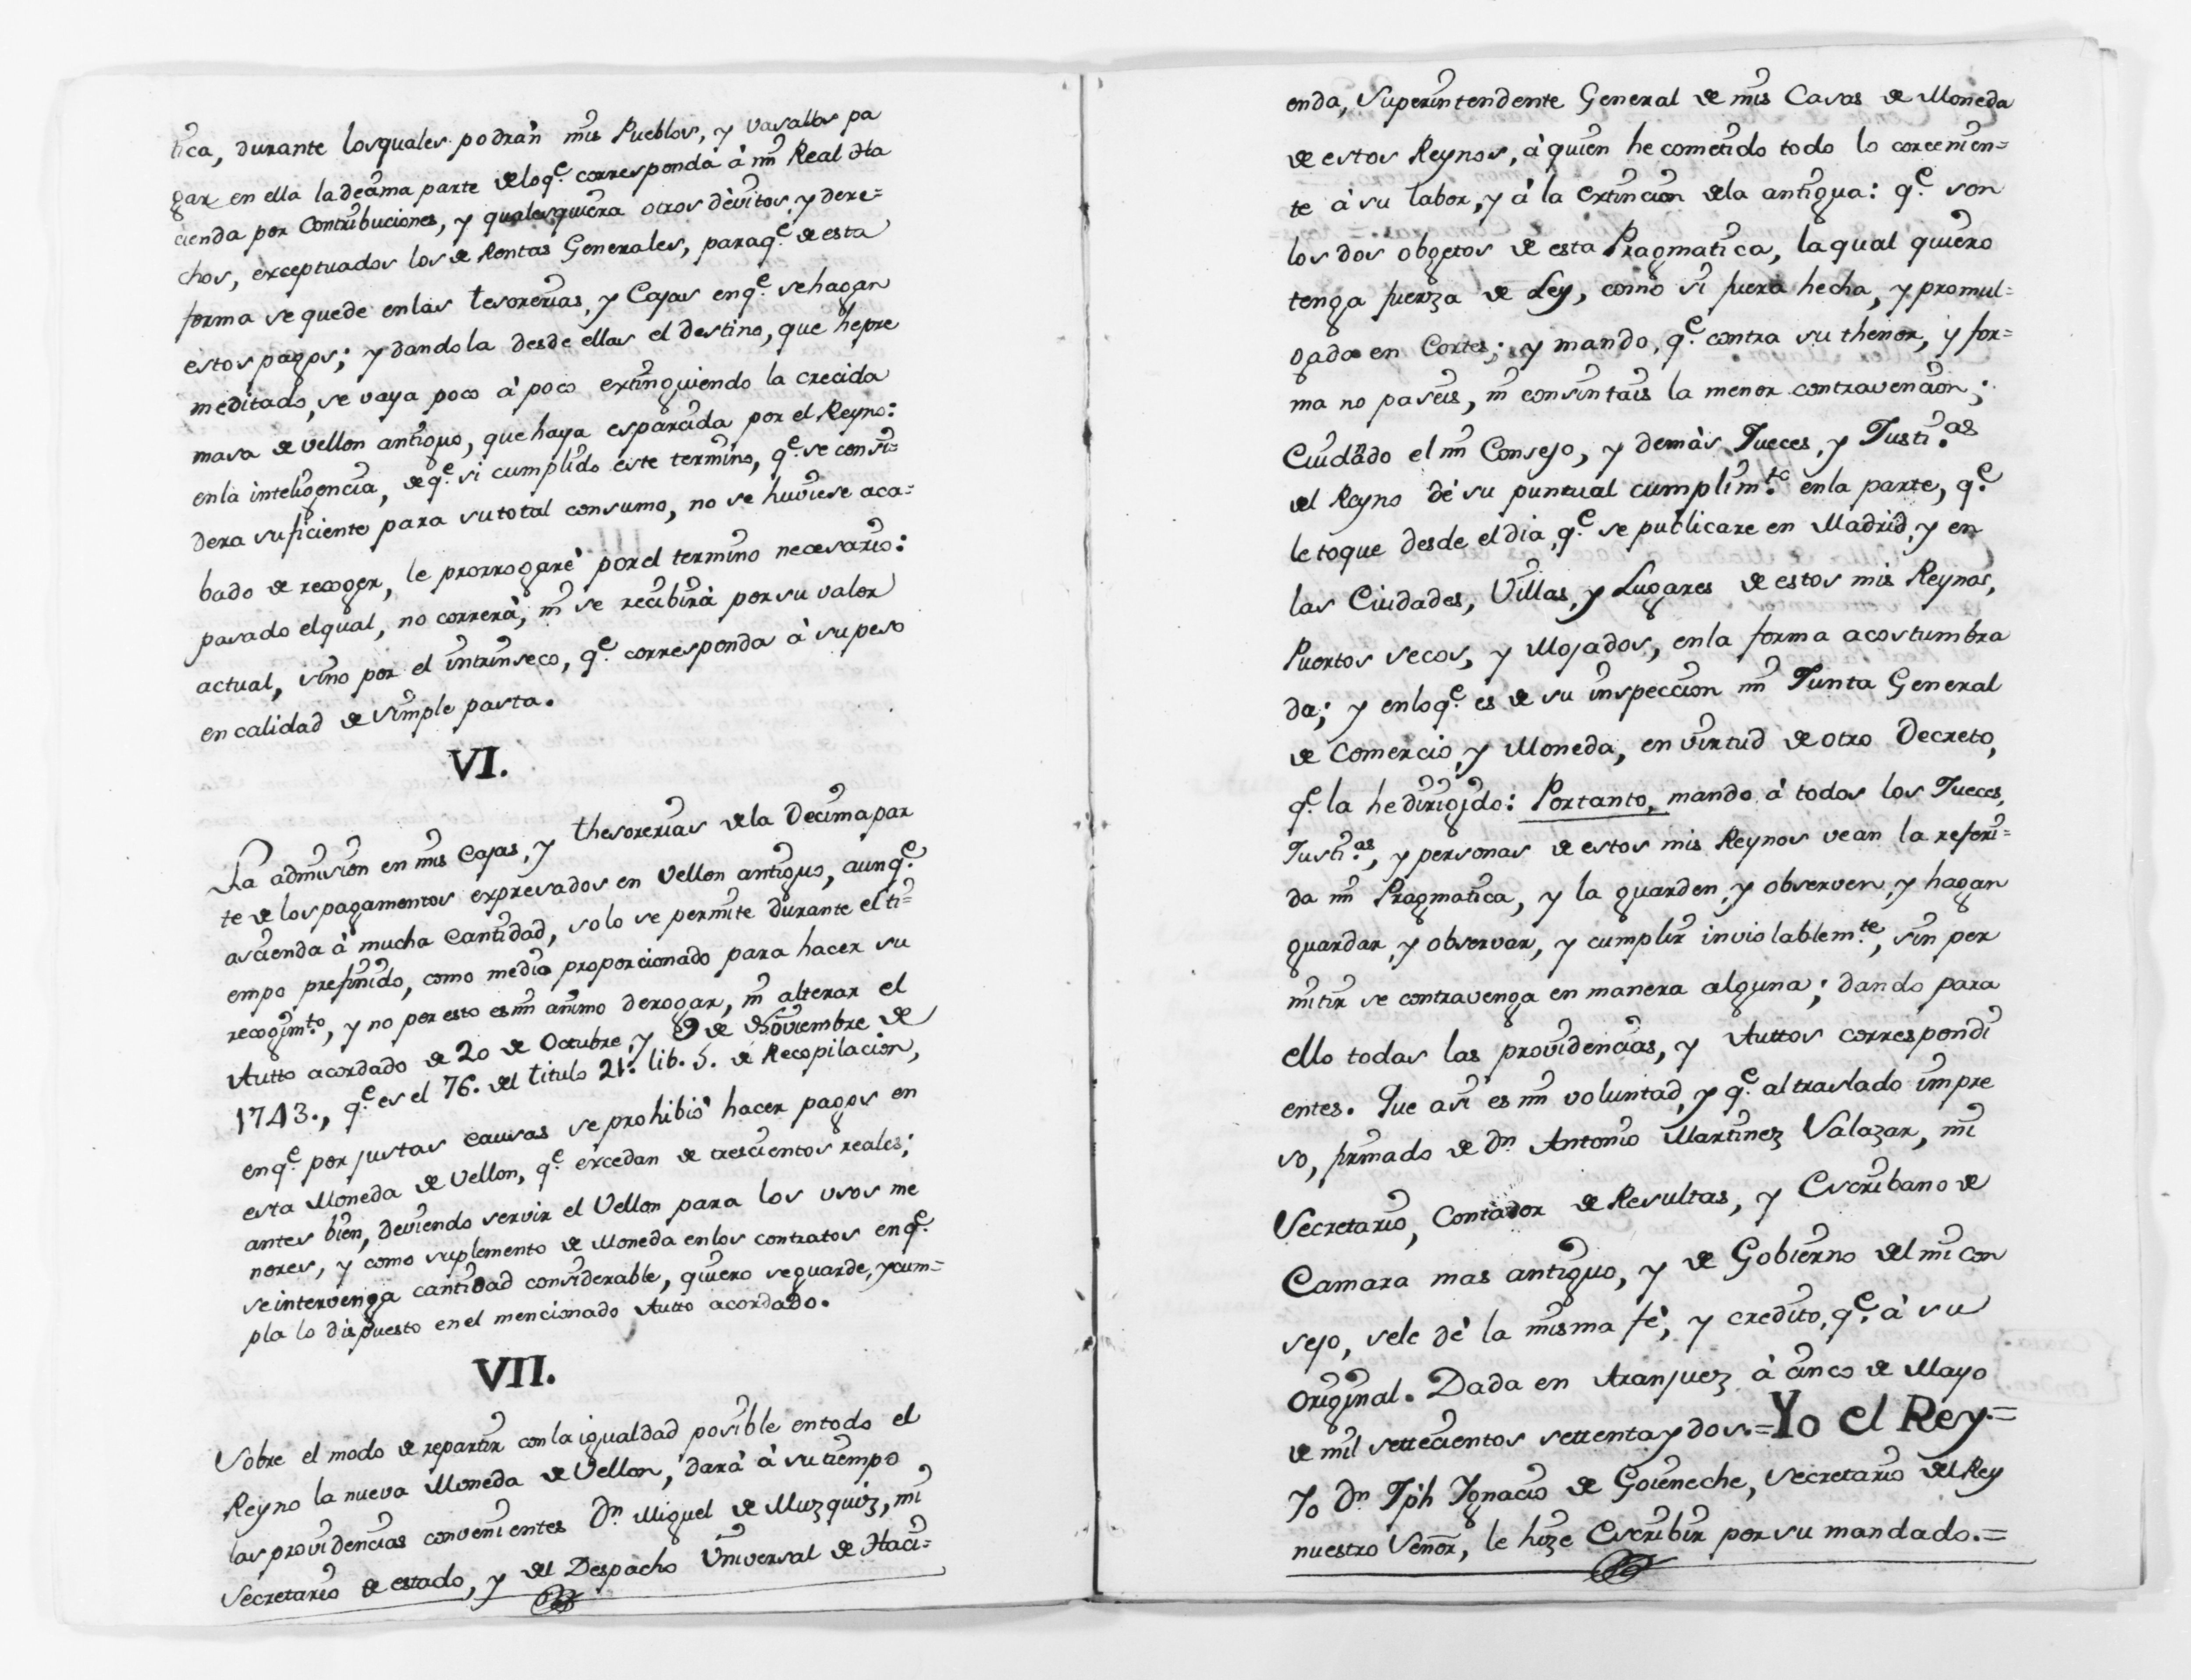 tica, durante losquales podràn mis Pueblos, y vasallos pa
gar en ella la decima parte deloq.e corresponda à mi Real Ha
cienda por Contribuciones, y qualesquiera otros dèvitos, y dere=
chos, exceptuados los de Rentas Generales, paraq.e de esta
forma se quede enlas tesorerias, y Cajas enq.e sehagan
estos pagos; y dandola desde ellas el destino, que hepre
meditado, se vaya poco à poco extinguiendo la crecida
masa de vellon antiguo, que haya esparcida por el Reyno:
enla inteligencia, deq.e si cumplido este termino, q.e se consi=
dera suficiente para su total consumo, no se huviese aca=
bado de recoger, le prorrogarè porel termino necesario:
pasado elqual, no correrà, ni se recibirà por su valor
actual, sino por el intrinseco, q.e corresponda à su peso
en calidad de simple pasta.
VI.
La admision en mis Cajas, y thesorerias dela Decima par
te de los pagamentos expresados en Vellon antiguo, aunq.e
ascienda à mucha Cantidad, solo se permite durante el ti=
empo prefinido, como medio proporcionado para hacer su
recogim.to, y no por esto es mi animo derogar, ni alterar el
Autto acordado de 20 de Octubre, y 9 de Noviembre de
1743., q.e es el 76. del titulo 21. lib. 5. de Recopilacion,
enq.e por justas causas se prohibiò hacer pagos en
esta Moneda de Vellon, q.e excedan de trescientos reales;
antes bien, deviendo servir el Vellon para los usos me
nores, y como suplemento de Moneda enlos contratos enq.e
se intervenga cantidad considerable, quiero seguarde, y cum=
pla lo dispuesto enel mencionado Autto acordado.
VII.
Sobre el modo de repartir con la igualdad posible entodo el
Reyno la nueva Moneda de Vellon, darà à su tiempo
las providencias convenientes Dn. Miguel de Muzquiz, mi
Secretario de estado, y del Despacho Universal de Haci=
enda, Superintendente General de mis Casas de Moneda
de estos Reynos, à quien he cometido todo lo concernien=
te à su labor, y à la extincion dela antigua: q.e son
los dos obgetos de esta Pragmatica, laqual quiero
tenga fuerza de Ley, como si fuera hecha, y promul=
gada en Cortes; y mando, q.e contra su thenor, y for=
ma no paseis, ni consintais la menor contravencion;
Cuidado el mi Consejo, y demàs Jueces, y Justi.as
del Reyno dè su puntual cumplim.to enla parte, q.e
le toque desde el dia, q.e se publicare en Madrid, y en
las Ciudades, Villas, y Lugares de estos mis Reynos,
Puertos secos, y Mojados, enla forma acostumbra
da; y enloq.e es de su inspeccion mi Junta General
de Comercio, y Moneda, en virtud de otro Decreto,
q.e la he dirigido: Portanto, mando à todos los Jueces,
Justi.as, y personas de estos mis Reynos vean la referi=
da mi Pragmatica, y la guarden, y observen, y hagan
guardar, y observar, y cumplir inviolablem.te, sin per
mitir se contravenga en manera alguna; dando para
ello todas las providencias, y Auttos correspondi
entes. Que asi es mi voluntad, y q.e al traslado impre
so, firmado de Dn. Antonio Martinez Salazar, mi
Secretario, Contador de Resultas, y Escribano de
Camara mas antiguo, y de Gobierno del mi con
sejo, sele dè la misma fè, y credito, q.e à su
original. Dada en Aranjuez à cinco de Mayo
de mil settecientos settenta y dos.=Yo el Rey.=
Yo Dn. Jph Ygnacio de Goieneche, Secretario del Rey
nuestro Señor, le hize Escribir por su mandado.=